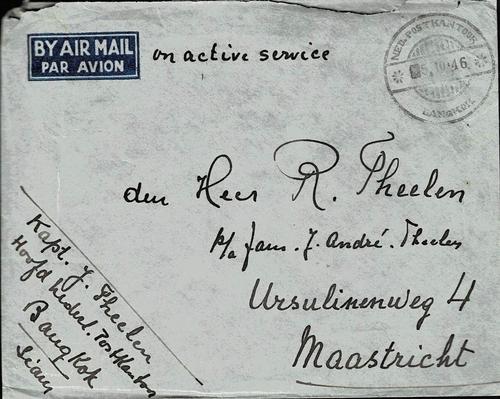 BY AIR MAIL
PAR AVION
on active service
NED. POSTKANTOOR
5.10.46
BANGKOK
den Heer R. Theelen
p/a fam. J. André. Theelen
Ursulinenweg 4
Maastricht
Kapt. J. Theelen
Hoofd Nederl. Postkantoor
Bangkok
Siam